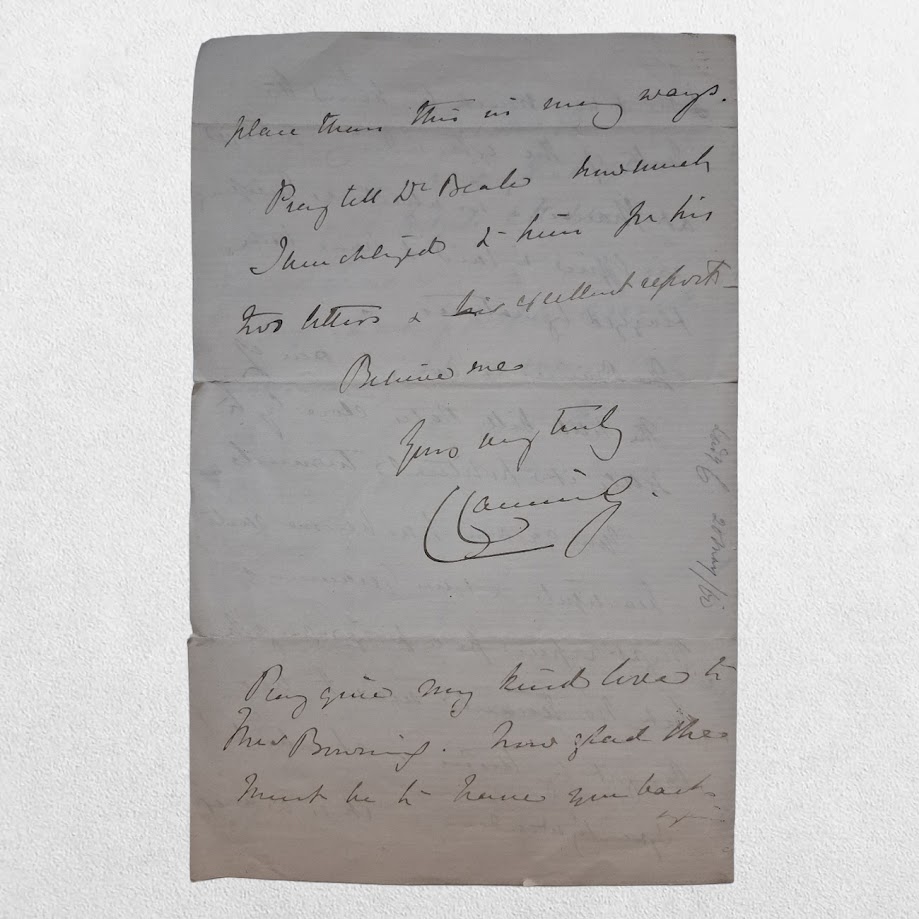 place than this in many ways.
Pray tell Dr Beale how much
I am obliged to him for his
two letters & his excellent reports –
Believe me
Yours very truly
Canning.
Pray give my kind love to
Mrs Bowring. How glad she
must be to have you back
again